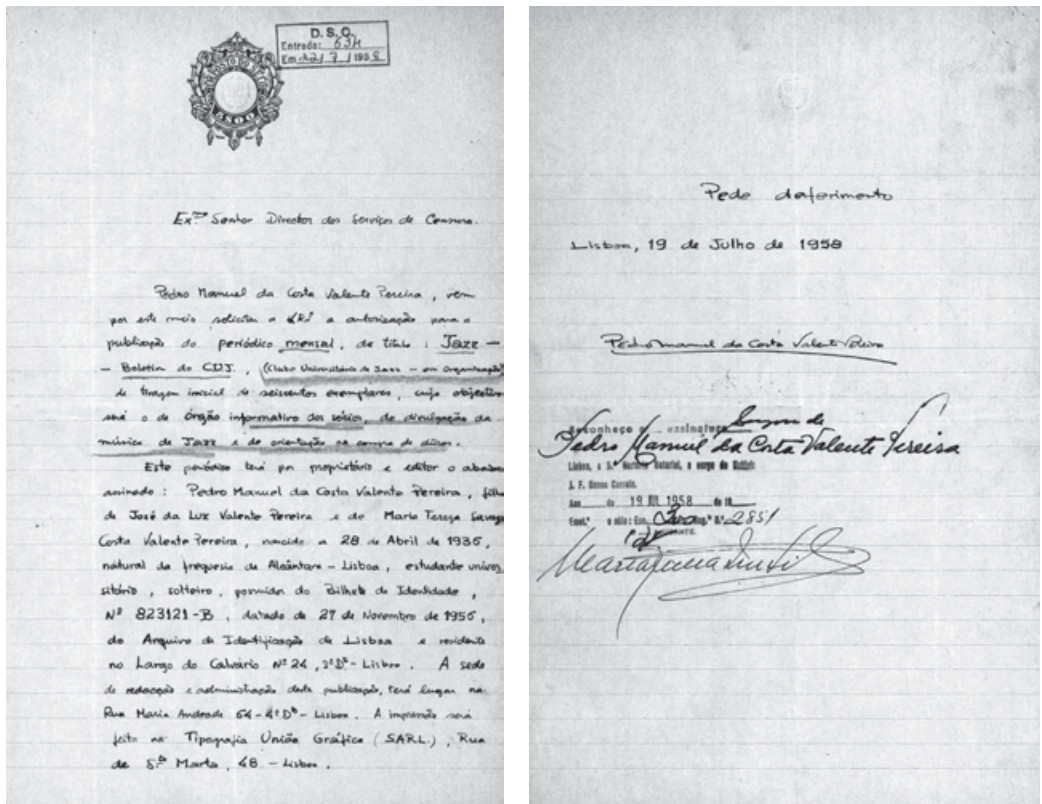 D.S.C.
Entrada: 634
Em 22/7/1958
IMPOSTO DO SELO
Exmo Senhor Director dos Serviços de Censura.
Pedro Manuel da Costa Valente Pereira, vem
por este meio solicitar a V.Exa a autorização para a
publicação do periódico mensal, de título: Jazz —
— Boletim do CUJ., (Clube Universitário de Jazz – em Organização)
de tiragem inicial de seiscentos exemplares, cujo objectivo
será o de órgão informativo dos sócios, de divulgação da
música de Jazz e de orientação na compra de discos.
Este periódico terá por proprietário e editor o abaixo
assinado: Pedro Manuel da Costa Valente Pereira, filho
de José da Luz Valente Pereira e de Maria Tereza
Costa Valente Pereira, nascido a 28 de Abril de 1936,
natural da freguesia de Alcântara – Lisboa, estudante univer
sitário, solteiro, possuidor do Bilhete de Identidade,
Nº 823121-B, datado de 27 de Novembro de 1956,
do Arquivo de Identificação de Lisboa e residente
no Largo do Calvário Nº 24, 2º Dto – Lisboa. A sede
de redacção e administração desta publicação, terá lugar na
Rua Maria Andrade 64-4º Dto – Lisboa. A impressão será
feita na Tipografia União Gráfica (SARL.), Rua
de Sta Marta, 48. – Lisboa.
Pede deferimento
Lisboa, 19 de Julho de 1958
Pedro Manuel da Costa Valente Pereira
Reconheço a assinatura
Pedro Manuel da Costa Valente Pereira
Lisboa, e 5.º Notarial, a cargo do
J. F.
19 JUL 1958 de 19
Nº 2851